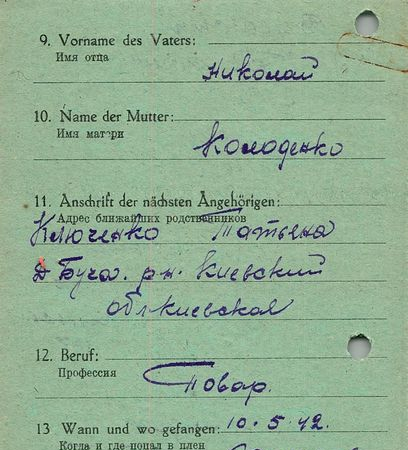 9. Vorname des Vaters:
Имя отца
Николай
10. Name der Mutter:
Имя матери
Колоденко
11. Anschrift der nächsten Angehörigen:
Адрес ближайших родственников
Ключенко Татьена
д Буча. р-н. Киевский
обл киевская
12. Beruf:
Профессия
Повар.
13 Wann und wo gefangen: 10.5.42.
Когда и где попал в плен